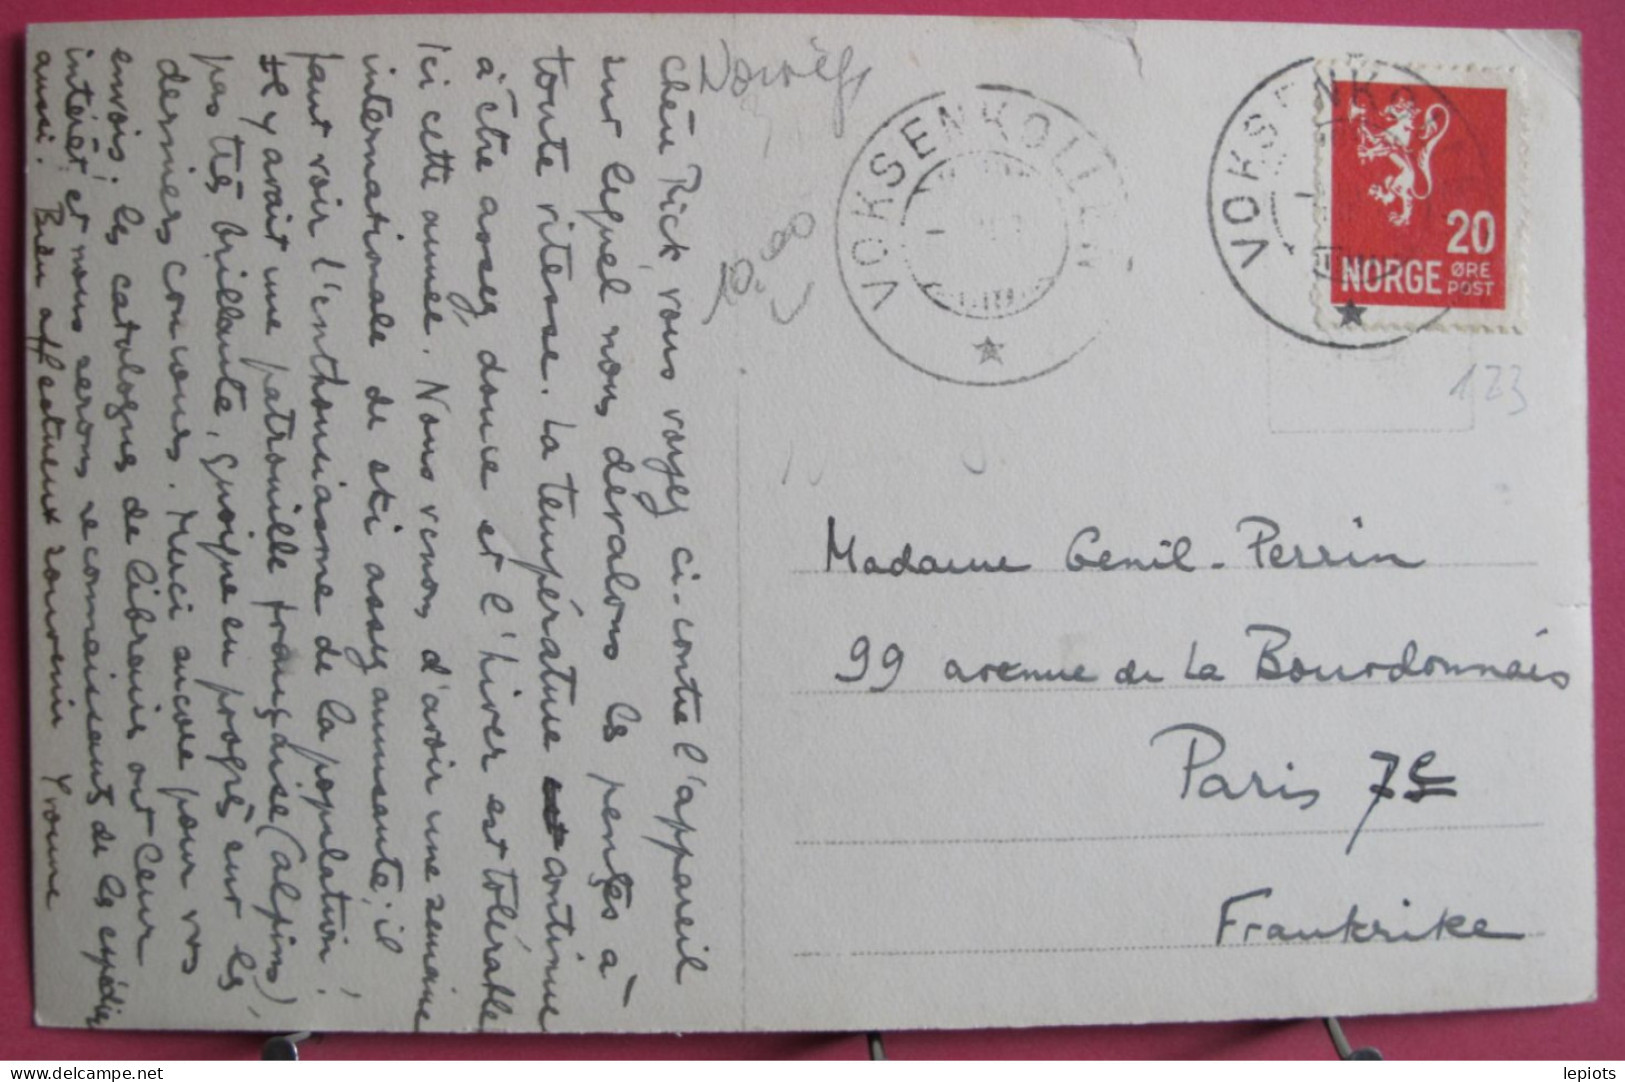 Norvège
chère Rick, vous voyez ci-contre l'appareil
sur lequel nous dévalons les pentes à
toute vitesse. La température continue
à être assez douce et l'hiver est tolérable
ici cette année. Nous venons d'avoir une semaine
internationale de ski assez amusante; il
faut voir l'enthousiasme de la population!
Il y avait une patrouille française (alpins),
pas très brillante, quoique en progrès sur les
derniers concours. Merci encore pour vos
envois; les catalogues de libraires ont leur
intérêt et nous serons reconnaissants de les expédier
aussi. Bien affectueux souvenir Yvonne
VOKSENKOLLEN
VOKSENKOLLEN
20
NORGE ØRE
POST
123
Madame Genil-Perrin
99 avenue de La Bourdonnais
Paris 7e
Frankrike
lepiots